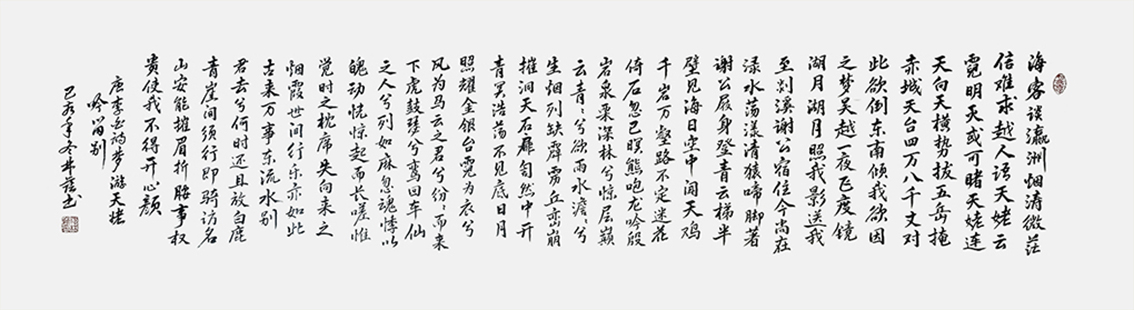 海客谈瀛洲烟涛微茫
信难求越人语天姥云
霓明灭或可睹天姥连
天向天横势拔五岳掩
赤城天台四万八千丈对
此欲倒东南倾我欲因
之梦吴越一夜飞度镜
湖月湖月照我影送我
至剡溪谢公宿住今尚在
渌水荡漾清猿啼脚著
谢公屐身登青云梯半
壁见海日空中闻天鸡
千岩万壑路不定迷花
倚石忽已暝熊咆龙吟殷
岩泉栗深林兮惊层巅
云青々兮欲雨水澹々兮
生烟列缺霹雳丘峦崩
摧洞天石扉訇然中开
青冥浩荡不见底日月
照耀金银台霓为衣兮
风为马云之君兮纷々而来
下虎鼓瑟兮鸾回车仙
之人兮列如麻忽魂悸以
魄动恍惊起而长嗟惟
觉时之枕席失向来之
烟霞世间行乐亦如此
古来万事东流水别
君去兮何时还且放白鹿
青崖间须行即骑访名
山安能摧眉折腰事权
贵使我不得开心颜
唐李白梦游天姥
吟留别
己亥年冬书